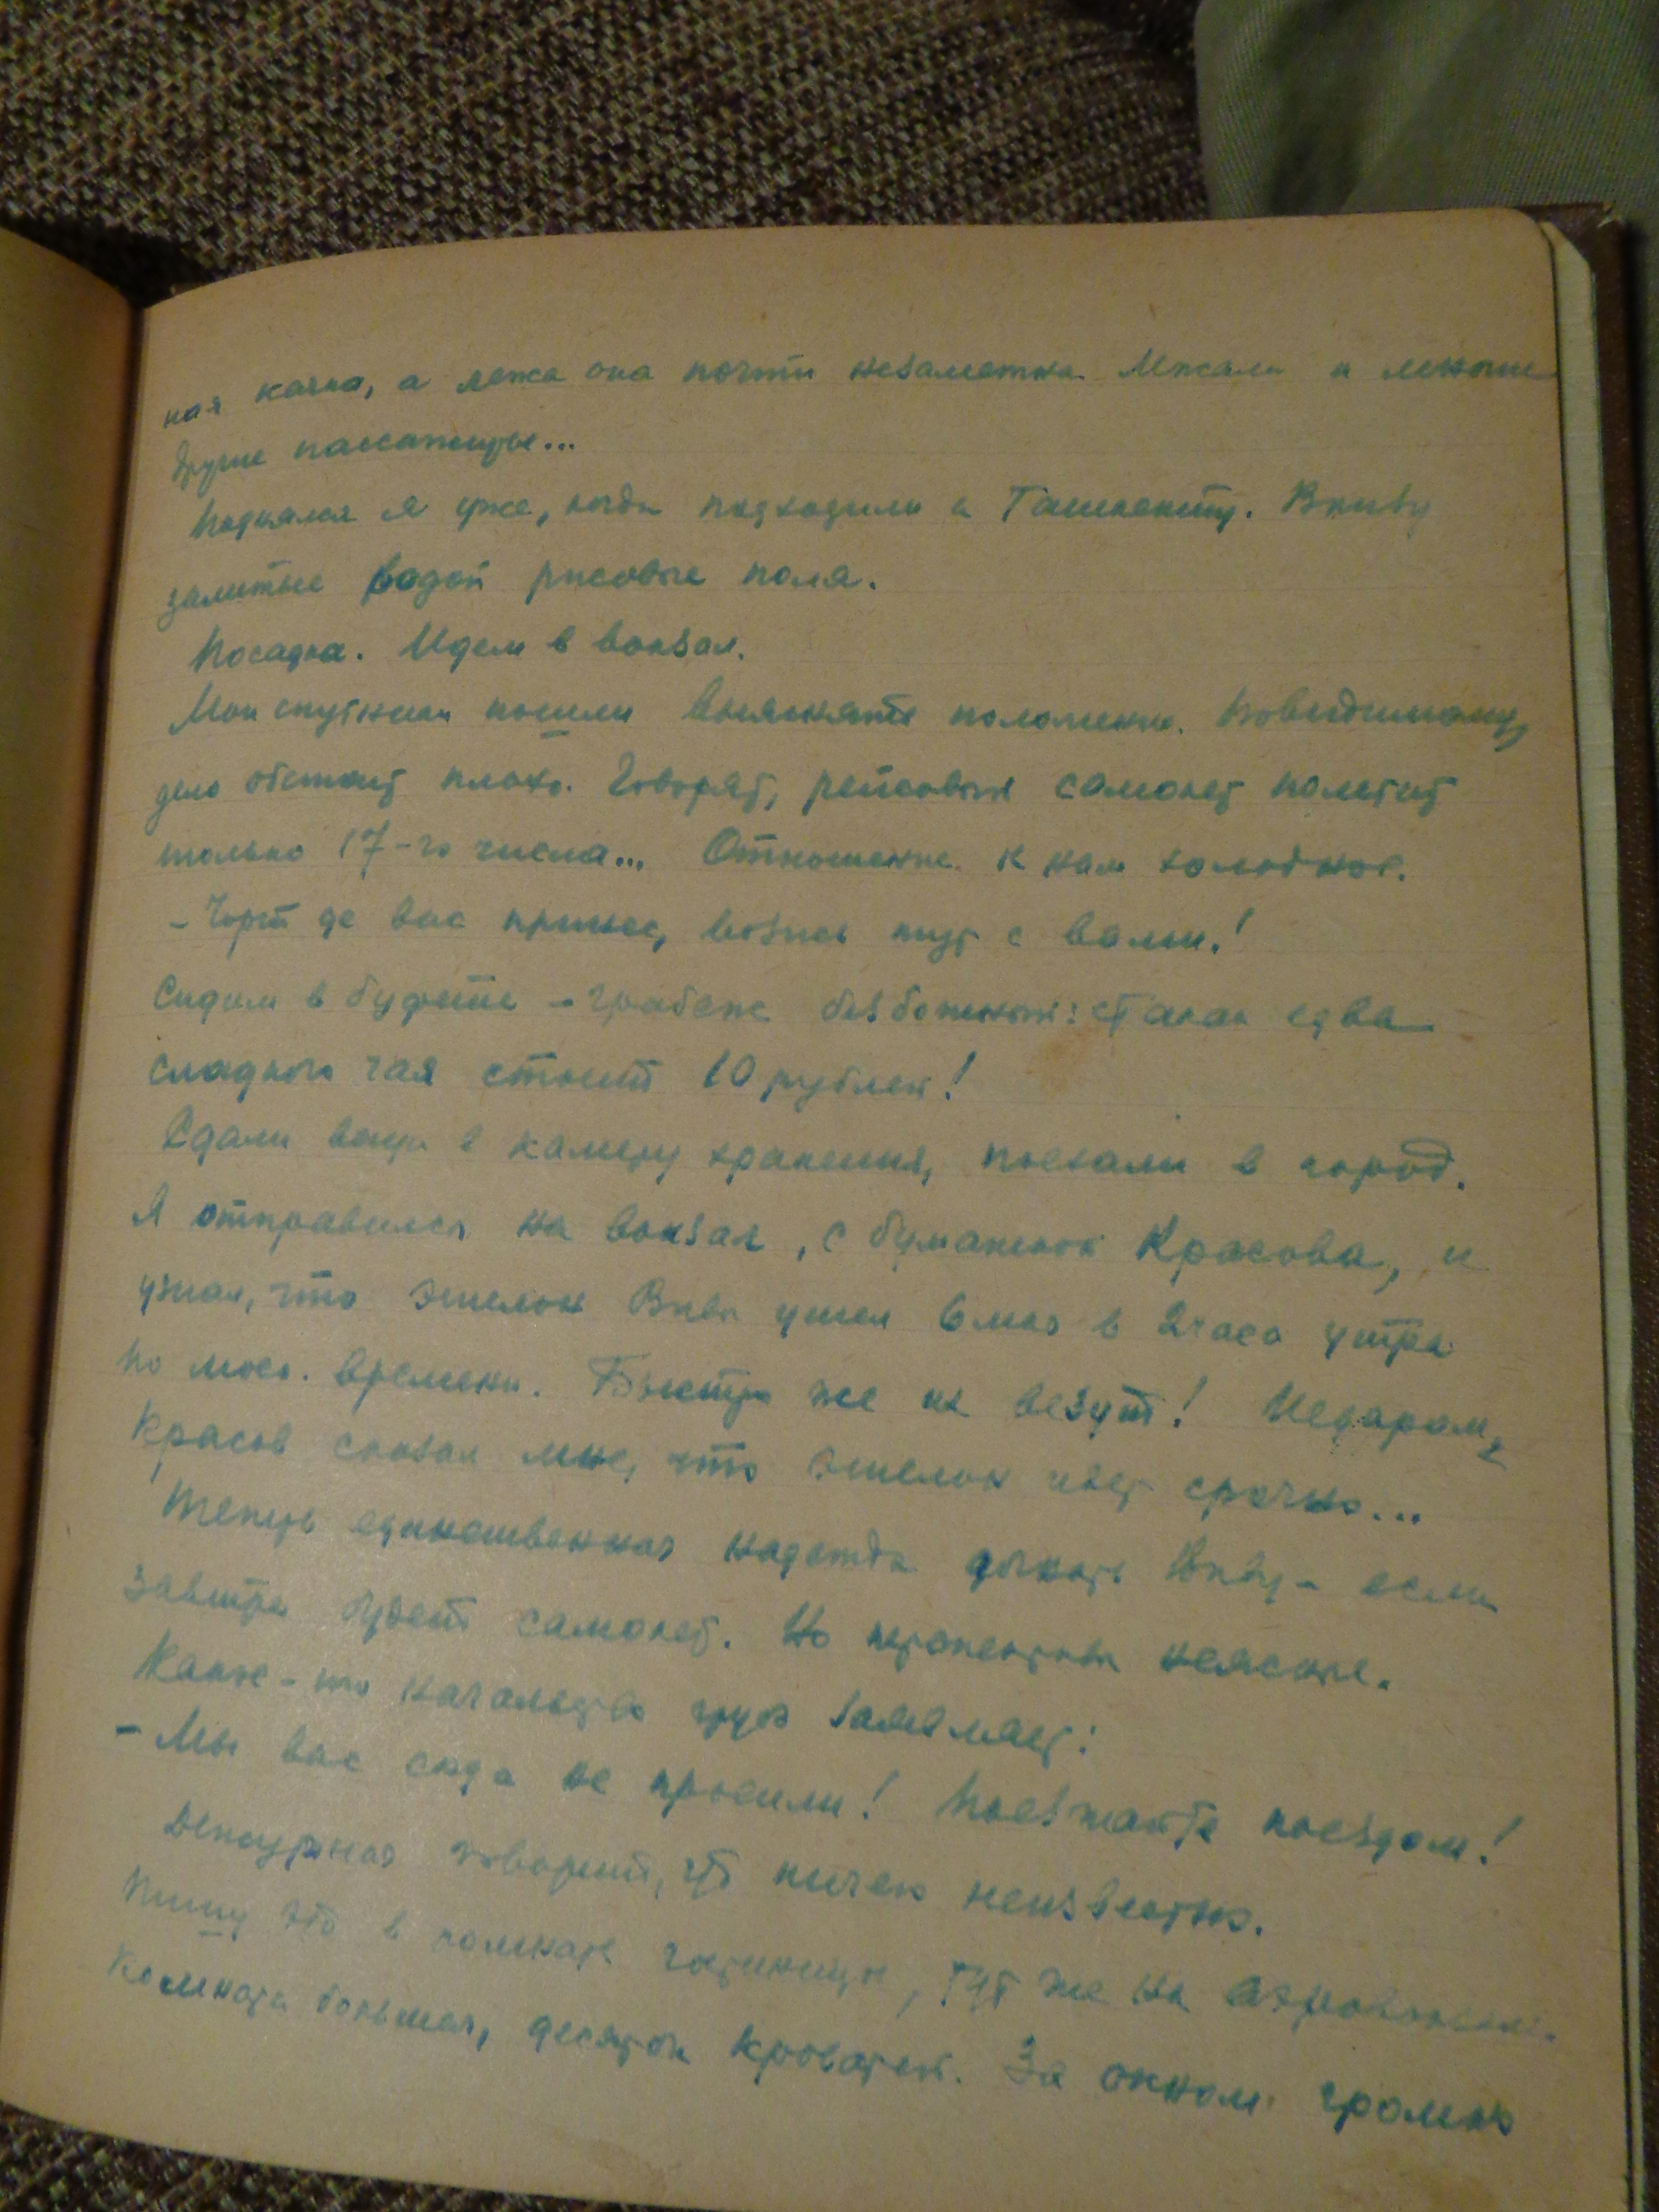 ная качка, а лежа она почти незаметна. Лежали и многие
другие пассажиры...
Поднялся я уже, когда подходили к Ташкенту. Внизу
залитые водой рисовые поля.
Посадка. Идем в вокзал.
Мои спутники пошли выяснять положение. Повидимому,
дело обстоит плохо. Говорят, рейсовый самолет полетит
только 17-го числа... Отношение к нам холодное.
- Чорт де вас принес, возись тут с вами!
Сидим в буфете - грабеж безбожный: стакан едва
сладкого чая стоит 10 рублей!
Сдали вещи в камеру хранения, поехали в город.
Я отправился на вокзал, с бумажкой Красова, и
узнал, что эшелон ушел 6 мая в 2 часа утра
по моск. времени. Быстро же их везут! Недаром,
Красов сказал мне, что эшелон идет срочно...
Теперь единственная надежда догнать - если
завтра будет самолет. Но перспективы неясные.
Какое-то начальство грубо заявляет:
- Мы вас сюда не просили! Поезжайте поездом!
Дежурная говорит, что ничего неизвестно.
Пишу это в комнате гостиницы, тут же на аэровокзале.
Комната большая, десяток кроватей. За окном громко